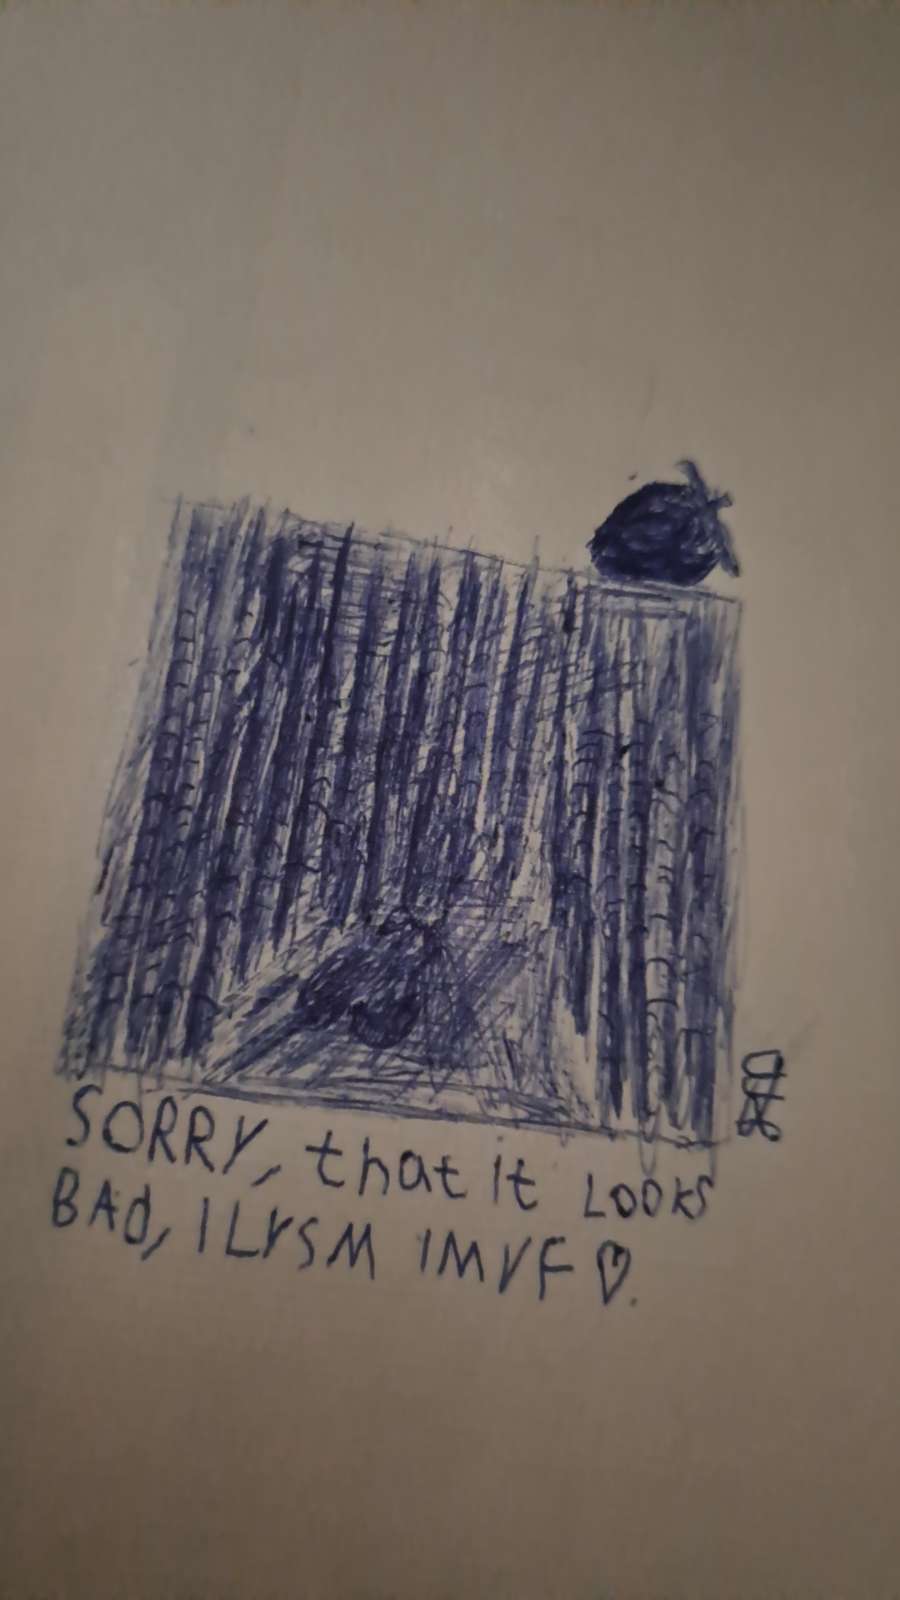 SORRY, that it LOOKS
BAd, I LYSM IMYF ♡.